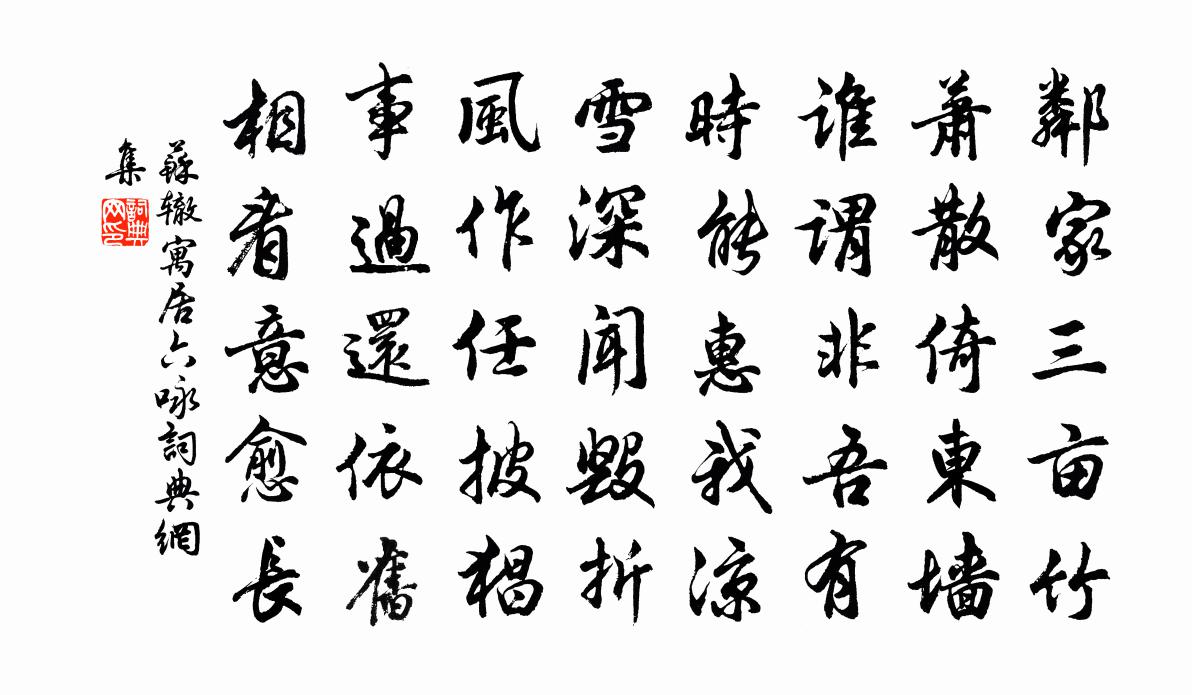 鄰家三亩竹
蕭散倚東墙
谁謂非吾有
時能惠我涼
雪深闻毁折
風作任披猖
事過還依舊
相看意愈長
蘇辙寓居六咏詞典網
集
詞典
网印